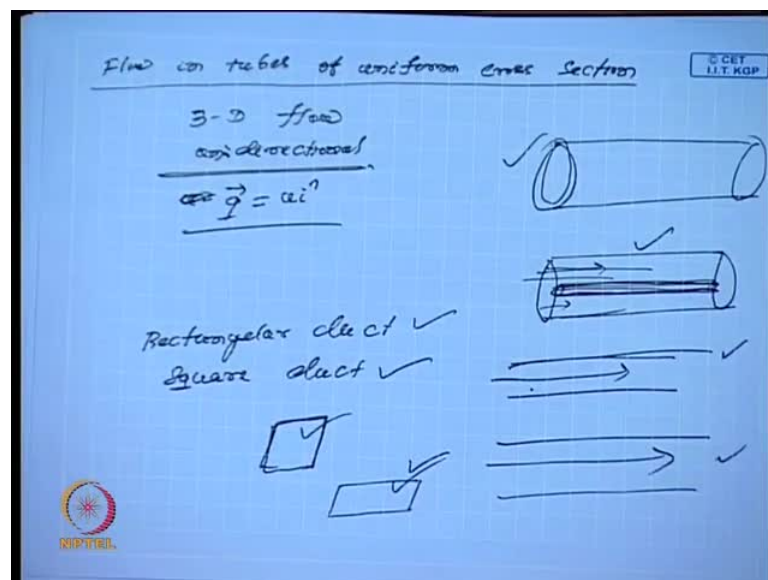 Flow in tubes of uniform cross Section
© CET
I.I.T. KGP
3-D flow
unidirectional
q⃗ = uî
Rectangular duct ✓
Square duct ✓
NPTEL